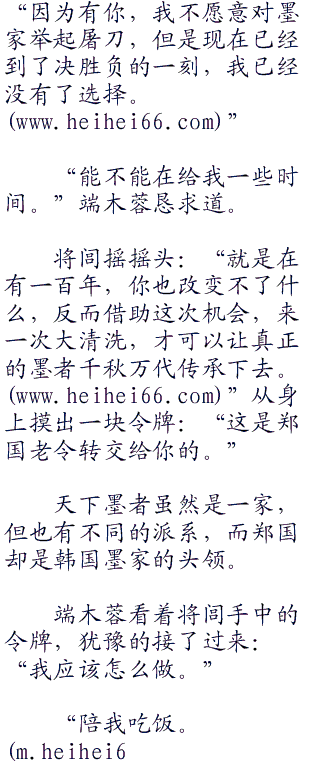 “因为有你，我不愿意对墨
家举起屠刀，但是现在已经
到了决胜负的一刻，我已经
没有了选择。
(www.heihei66.com)”
“能不能在给我一些时
间。”端木蓉恳求道。
将闾摇摇头：“就是在
有一百年，你也改变不了什
么，反而借助这次机会，来
一次大清洗，才可以让真正
的墨者千秋万代传承下去。
(www.heihei66.com)”从身
上摸出一块令牌：“这是郑
国老令转交给你的。”
天下墨者虽然是一家，
但也有不同的派系，而郑国
却是韩国墨家的头领。
端木蓉看着将闾手中的
令牌，犹豫的接了过来：
“我应该怎么做。”
“陪我吃饭。
(m.heihei6